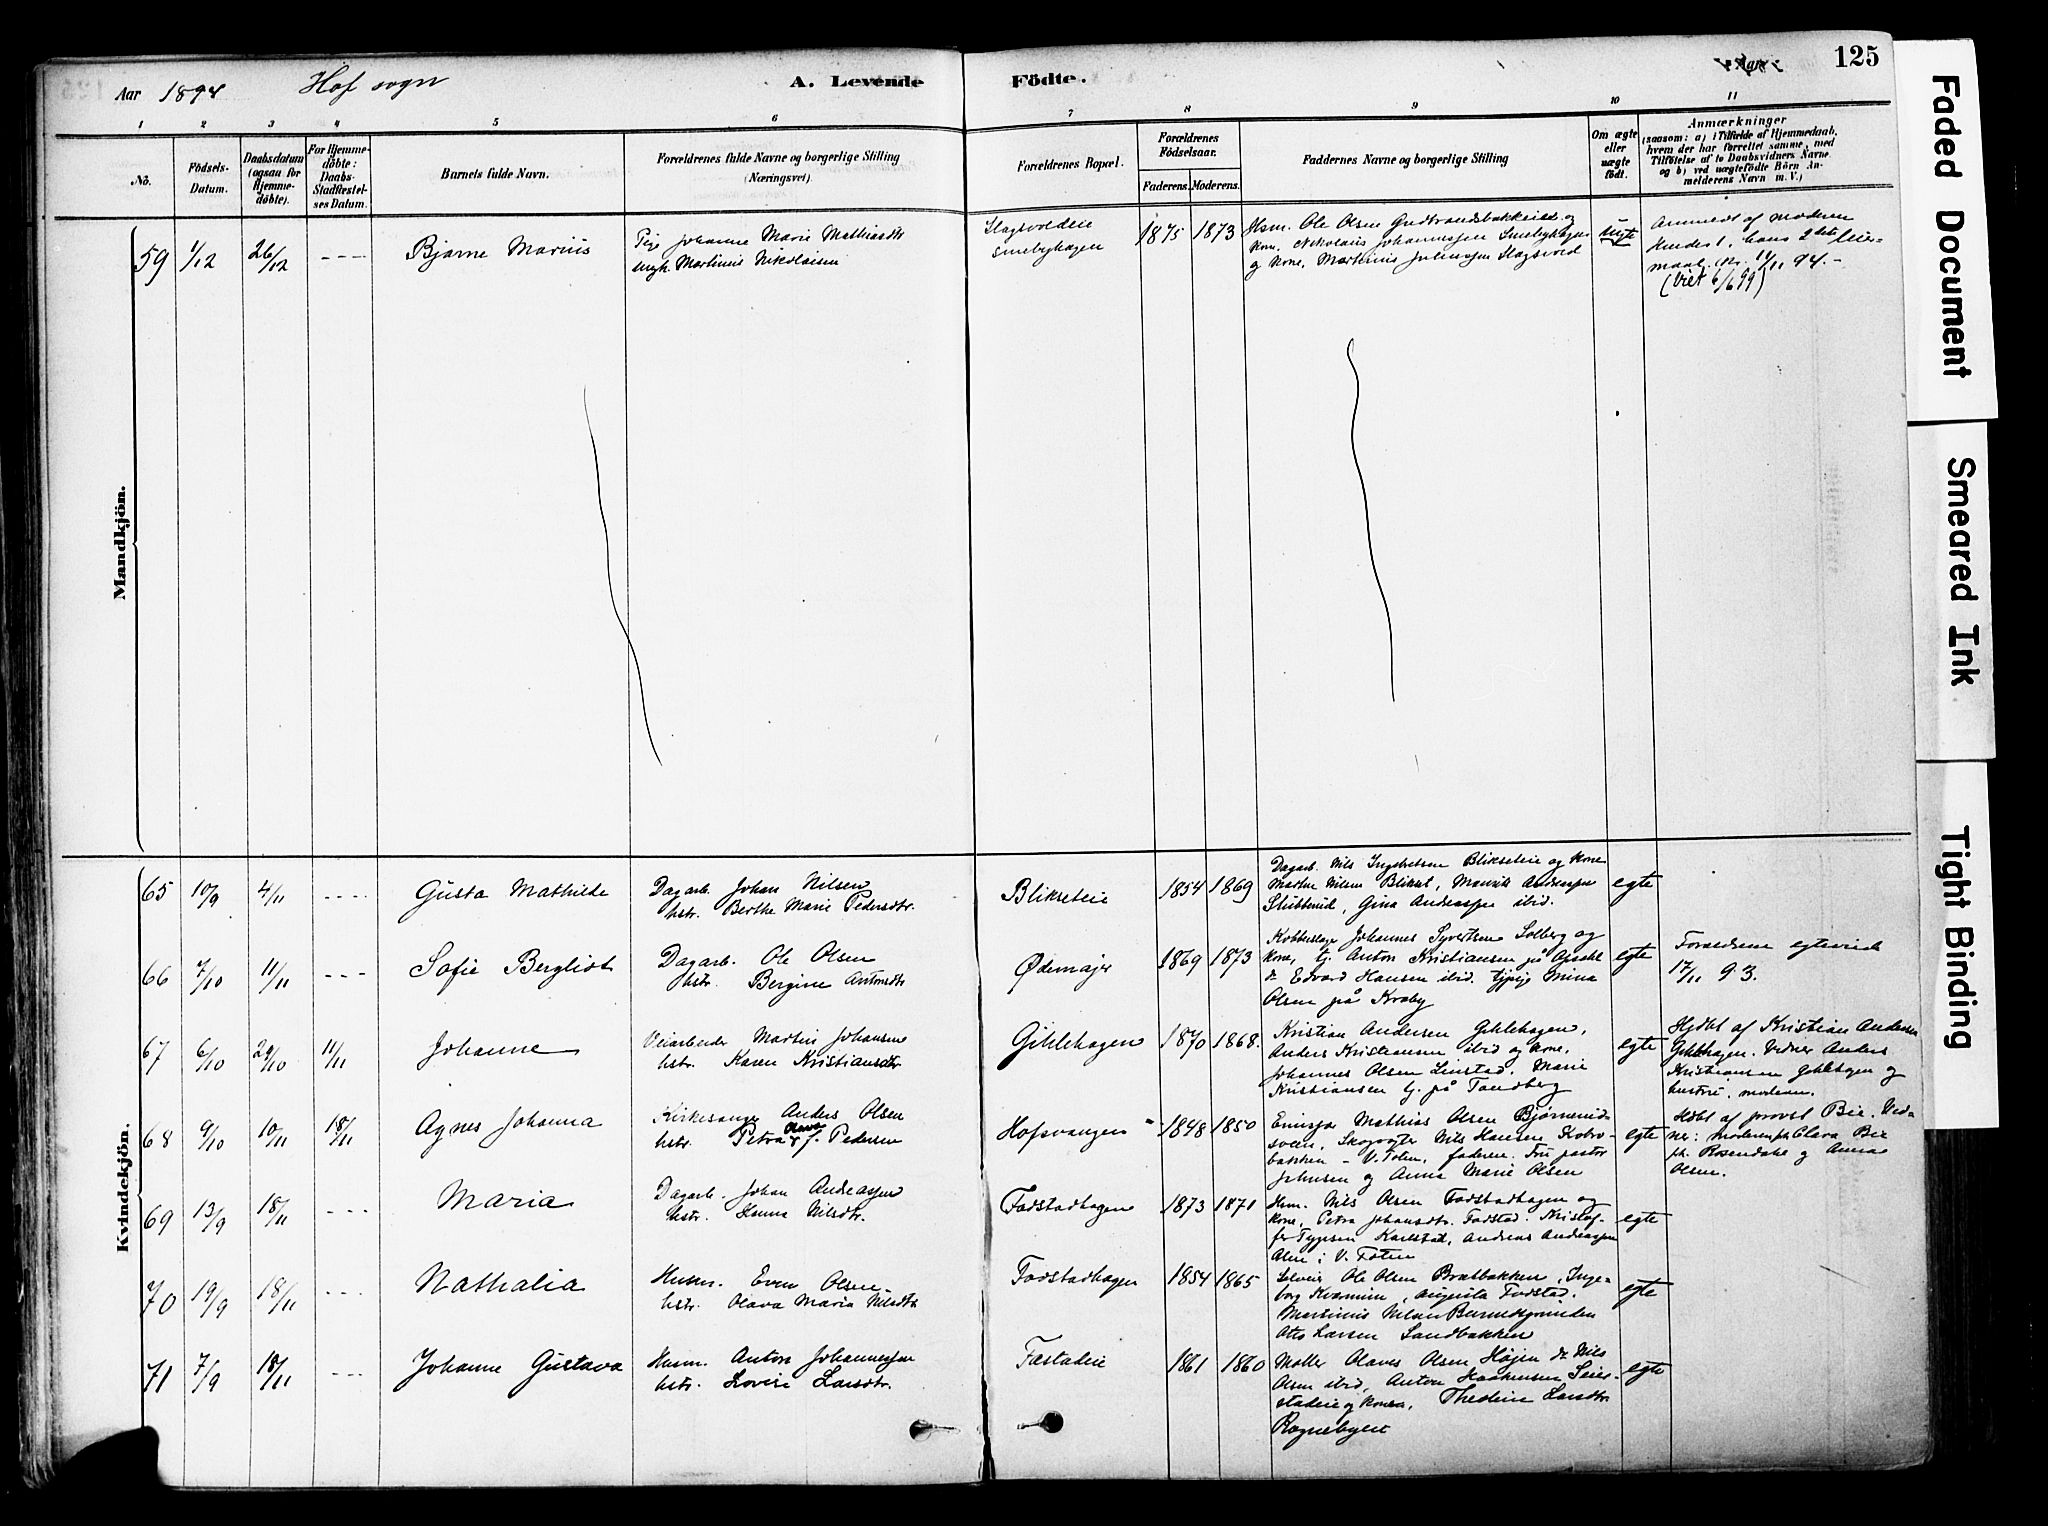 125
Aar 1894 Hof sogn A. Levende Födte. Aar
1 2 3 4 5 6 7 8 9 10 11
No.
Födsels-
Datum.
Daabsdatum
(ogsaa for
Hjemme-
døbte).
For Hjemme-
döbte:
Daabs-
Stadfæstel-
ses Datum.
Barnets fulde Navn.
Forældrenes fulde Navne og borgerlige Stilling
(Næringsvei).
Forældrenes Bopæl.
Forældrenes
Födselsaar.
Faderens. Moderens.
Faddernes Navne og borgerlige Stilling
Om ægte
eller
uægte
födt.
Anmærkninger
(saasom: a) i Tilfælde af Hjemmedaab,
hvem der har forrettet samme, med
Tilföielse af to Daabsvidners Navne
og b) ved uægtefödte Börn An-
melderens Navn m. V.)
Mandkjön.
59 1/12 26/12 ---- Bjarne Marius
Pige Johanne Marie Mathiasdtr
ungk. Martinius Nikolaisen
Slagsvoldeie
Smebyhagen
1875 1873
Hsm. Ole Olsen Gudbrandsbakkeie og
kone, Nikolais Johannessen Smebyhagen
og kone, Martinius Julinssen Slagsvold
uegte
Anmeldt af moderen
hendes 1, hans 2det leier-
maal. 14/11 94.-
(Viet 6/6 99)
Kvindekjön.
65 10/9 4/11 ---- Gusta Mathilde
Dagarb. Johan Nilsen
hstr. Berthe Marie Pedersdtr.
Blikseteie
1854 1869
Dagarb. Nils Ingebretsen Blikseteie og kone
Marthe Nilsen Blikset,
Stubberud, Gina Andreassen ibid.
egte
66 7/10 11/11 --- Sofie Bergliot
Dagarb. Ole Olsen
hstr. Bergine Antonsdtr
Ødemajer
1869 1873
Kobberslager Johannes Syvertsen Solberg og
kone, tj. Anton Kristiansen på
Edvard Hansen ibid. tjpige Mina
Olsen på Kraby
egte
Forældrene egteviede
17/11 93.
67 6/10 29/10 11/11 Johanne
Veiarbeider Martin Johansen
hstr. Karen Kristiansdtr
Giklehagen
1870 1868.
Kristian Andersen Giklehagen,
Anders Kristiansen ibid og kone,
Johannes Olsen Linstad. Marie
Kristiansen tj. på Tandberg
egte
Hjdbt af Kristian Andersen
Giklehagen. Vidner Anders
Kristiansen Giklehagen og
hustru, moderen.
68 9/10 10/11 18/11 Agnes Johanna
Kirkesanger Anders Olsen
hstr. Petra Olava f. Pedersen
Hofsvangen
1848 1850
Emisjær Mathias Olsen Bjørnerud-
sveen, Skogvogter Nils Hansen
bakken - V. Toten, faderen. Fru pastor
Johnsen og Anna Marie Olsen
egte
Hdbt af provst Bie. Vid-
ner: moderen, frk. Clara Bie
frk. Rosendahl og Anna
Olsen.
69 13/9 18/11 --- Maria
Dagarb. Johan Andreassen
hstr. Hanna Nilsdtr.
Fodstadhagen
1873 1871
Hsm. Nils Olsen Fodstadhagen og
kone, Petra Johansdtr. Fodstad. Kristof-
fer Karlstad, Andreas Andreassen
Alm i V. Toten
egte
70 19/9 18/11 --- Nathalia
Husm. Even Olsen
hstr. Olava Maria Nilsdtr
Fodstadhagen
1854 1865
Selveier Ole Olsen Bratbakken, Inge-
borg Augusta Fodstad.
Martinius Nilsen
Otto Larsen Sandbakken
egte
71 7/9 18/11 --- Johanne Gustava
Husm. Anton Johannessen
hstr. Lovise Larsdtr.
Fæstadeie
1861 1860
Møller Olaves Olsen Højen Nils
Olsen ibid, Anton Haakensen Seier-
stadeie og kone, Thedine Larsdtr
Rognebyeie
egte
Faded Document
Smeared Ink
Tight Binding